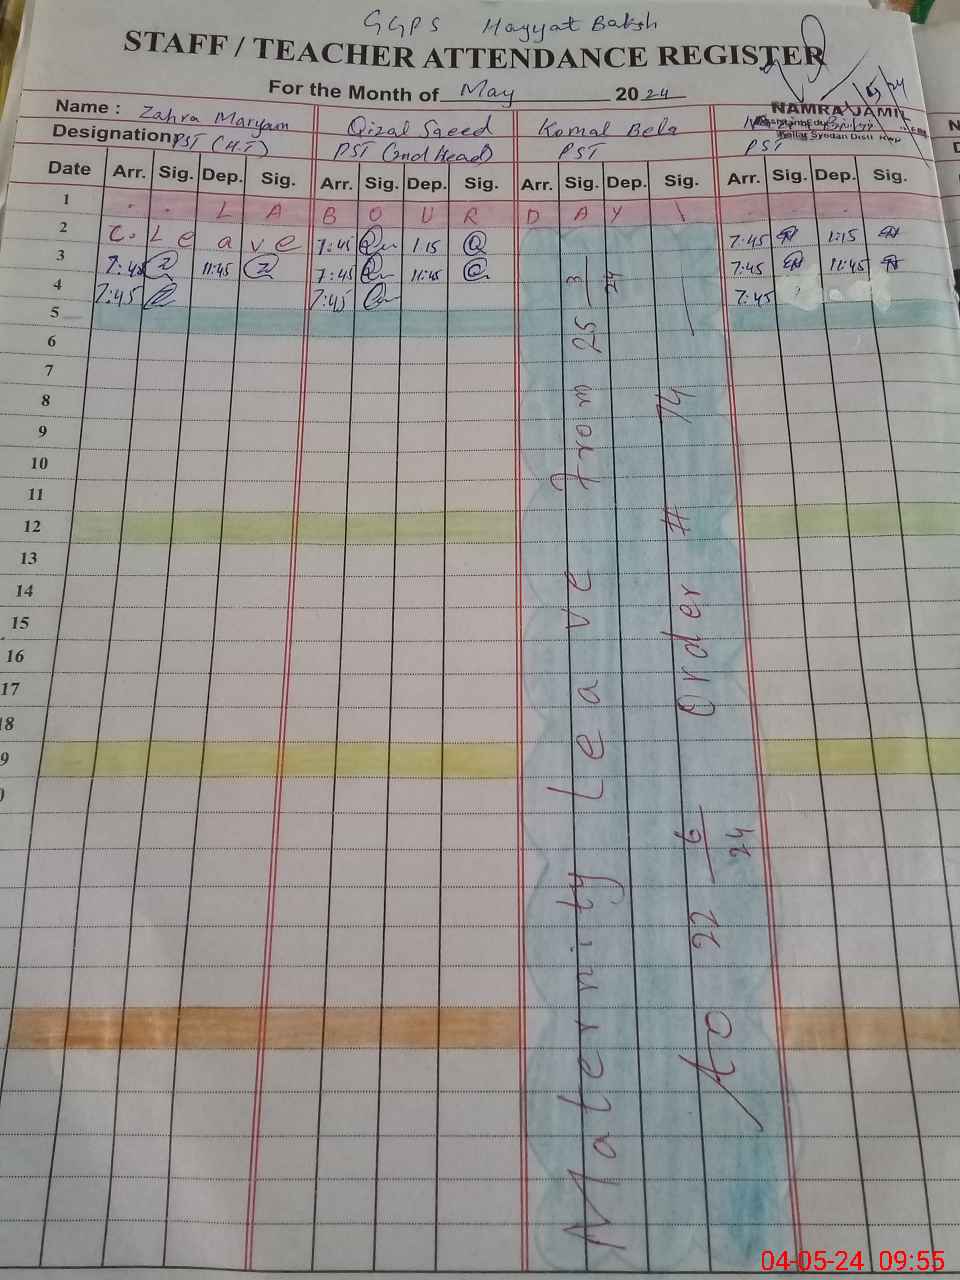 GGPS Hayyat Baksh
STAFF / TEACHER ATTENDANCE REGISTER
For the Month of May 2024
Name : Zahra Maryam Qizal Saeed Komal Bela
NAMRA JAMIL
Designation PST (H.T) PST (2nd Head) PST PST
Date Arr. Sig. Dep. Sig. Arr. Sig. Dep. Sig. Arr. Sig. Dep. Sig. Arr. Sig. Dep. Sig.
1 L A B O U R D A Y
2 C. Leave 7:45 1:15 7:45 1:15
3 7:45 11:45 7:45 11:45 7:45 11:45
4 7:45 7:45 7:45
5
6
7
8
9
10
11
12
13
14
15
16
17
18
9
Maternity Leave From 25 3 24
to 22 6 24 Order # 74
04-05-24 09:55